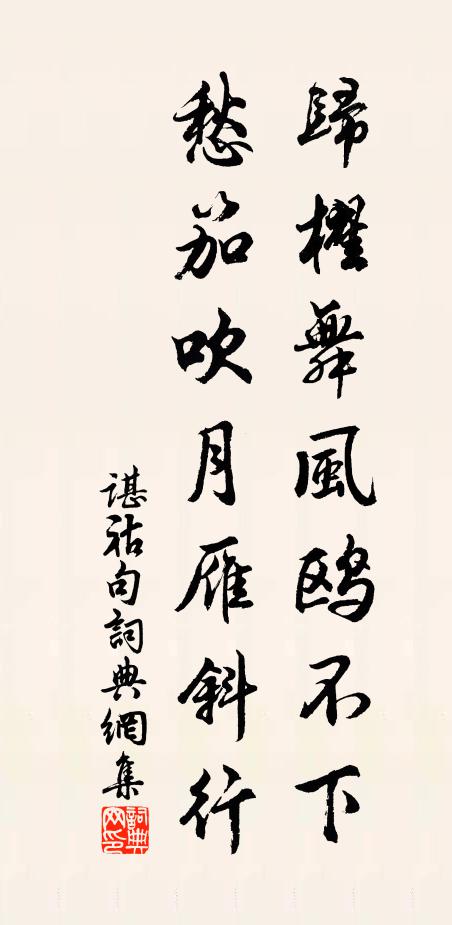 歸櫂舞風鷗不下
愁笳吹月雁斜行
諶祜句詞典網集
詞典網印